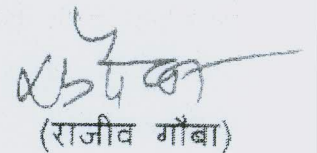 (राजीव गौबा)